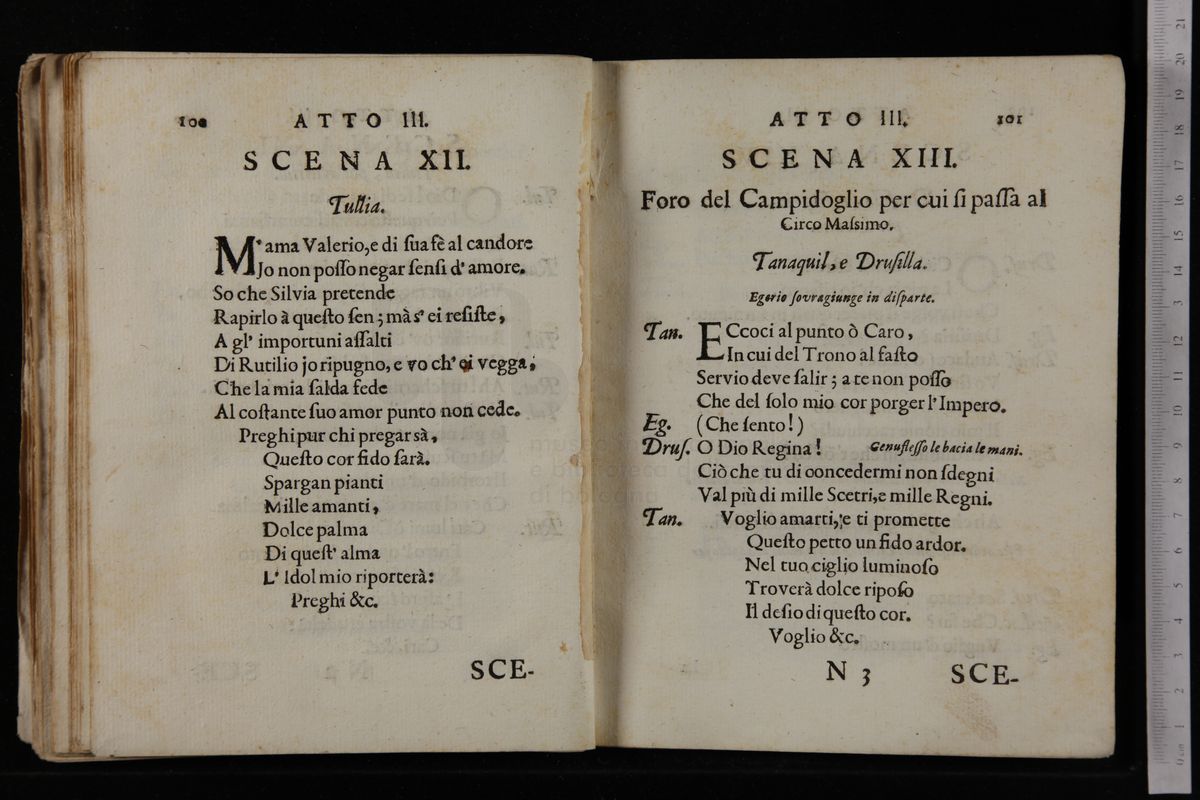 100 ATTO III.
SCENA XII.
Tullia.
M'ama Valerio, e di ſua fè al candore
Jo non poſſo negar ſenſi d'amore.
So che Silvia pretende
Rapirlo à queſto ſen; mà s' ei reſiſte,
A gl' importuni aſſalti
Di Rutilio jo ripugno, e vo ch' ei vegga,
Che la mia ſalda fede
Al coſtante ſuo amor punto non cede.
Preghi pur chi pregar sà,
Queſto cor fido ſarà.
Spargan pianti
Mille amanti,
Dolce palma
Di queſt' alma
L' Idol mio riporterà:
Preghi &c.
SCE-
ATTO III. 101
SCENA XIII.
Foro del Campidoglio per cui ſi paſſa al
Circo Maſsimo.
Tanaquil, e Druſilla.
Egerio ſovragiunge in diſparte.
Tan. ECcoci al punto ò Caro,
In cui del Trono al faſto
Servio deve ſalir; a te non poſſo
Che del ſolo mio cor porger l' Impero.
Eg. (Che ſento!)
Druſ. O Dio Regina! Genufleſſo le bacia le mani.
Ciò che tu di concedermi non ſdegni
Val più di mille Scetri, e mille Regni.
Tan. Voglio amarti, e ti promette
Queſto petto un fido ardor.
Nel tuo ciglio luminoſo
Troverà dolce ripoſo
Il deſio di queſto cor.
Voglio &c.
N 3 SCE-